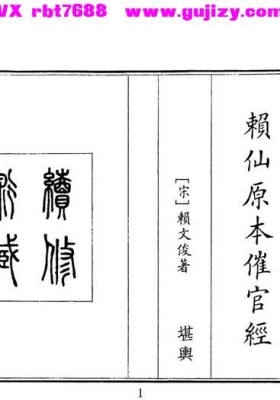 VX rbt7688 www.gujizy.com
賴仙原本催官經
[宋]賴文俊著 堪輿
續修
1